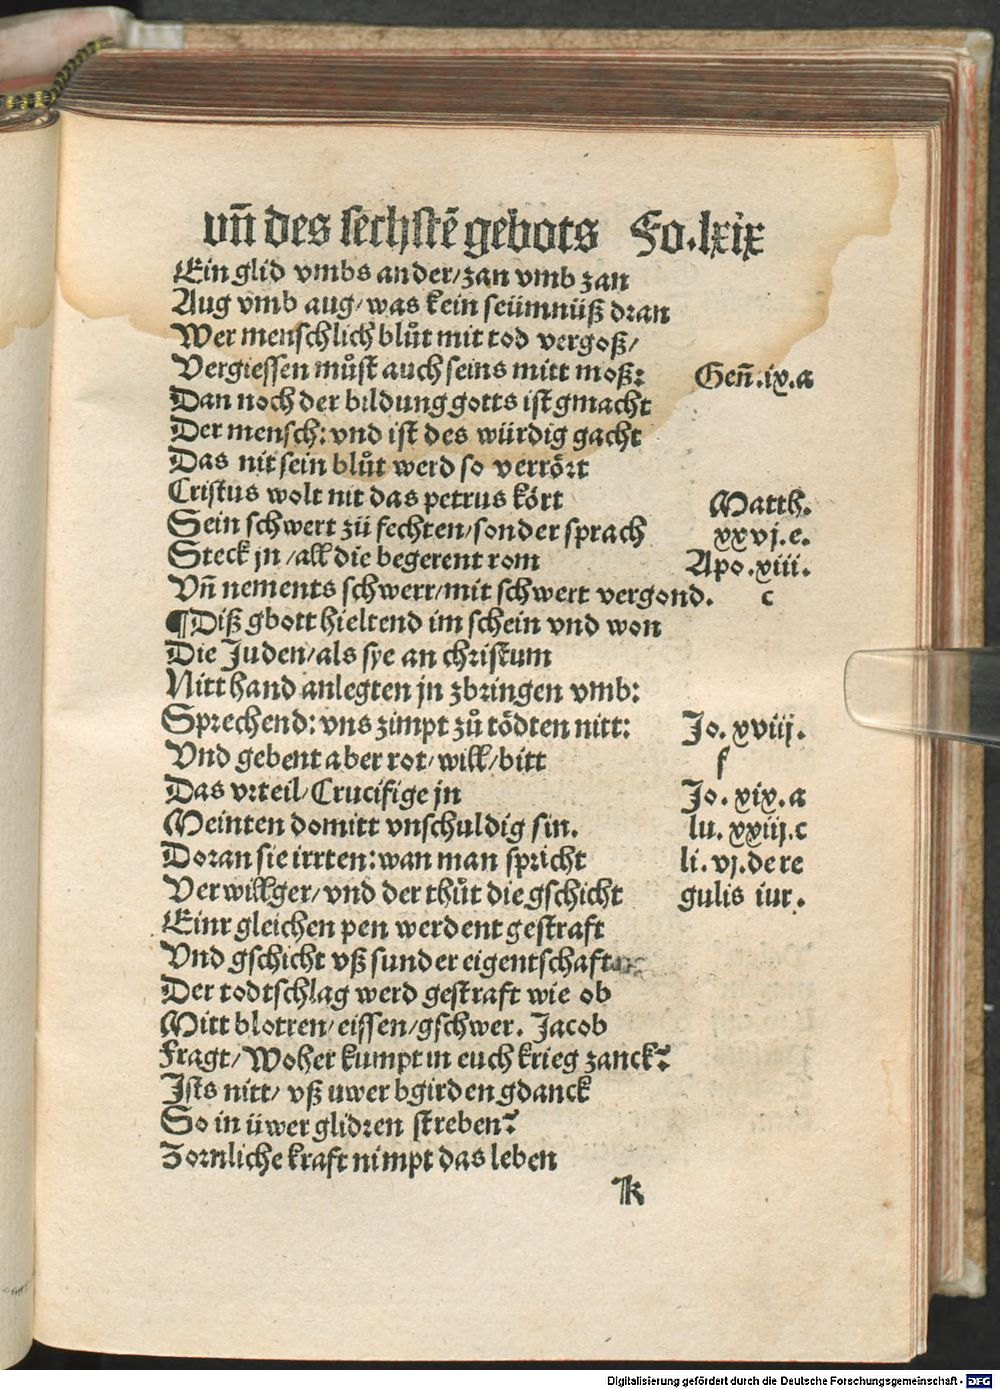 vn̄ des sechstē gebots Fo.lxix
Ein glid vmbs ander/zan vmb zan
Aug vmb aug/was kein seümnüß dran
Wer menschlich blůt mit tod vergoß/
Vergiessen můst auch seins mitt moß: Gen̄.ix.a
Dan noch der bildung gotts ist gmacht
Der mensch: vnd ist des würdig gacht
Das nit sein blůt werd so verrört
Cristus wolt nit das petrus kört Matth.
Sein schwert zü fechten/sonder sprach xxvj.e.
Steck jn/all die begerent rom Apo.xiii.
Vn̄ nements schwerr/mit schwert vergond. c
¶Diß gbott hieltend im schein vnd won
Die Juden/als sye an christum
Nitt hand anlegten jn zbringen vmb:
Sprechend: vns zimpt zů tödten nitt: Jo.xviij.
Vnd gebent aber rot/will/bitt f
Das vrteil/Crucifige jn Jo.xix.a
Meinten domitt vnschuldig sin. lu.xxiij.c
Doran sie irrten: wan man spricht li.vj.de re
Verwillger/vnd der thůt die gschicht gulis iur.
Einr gleichen pen werdent gestraft
Vnd gschicht vß sunder eigentschaft
Der todtschlag werd gestraft wie ob
Mitt blotren/eissen/gschwer. Jacob
Fragt/Woher kumpt in euch krieg zanck?
Ists nitt/vß uwer bgirden gdanck
So in üwer glidren streben?
Zornliche kraft nimpt das leben
k
Digitalisierung gefördert durch die Deutsche Forschungsgemeinschaft - DFG